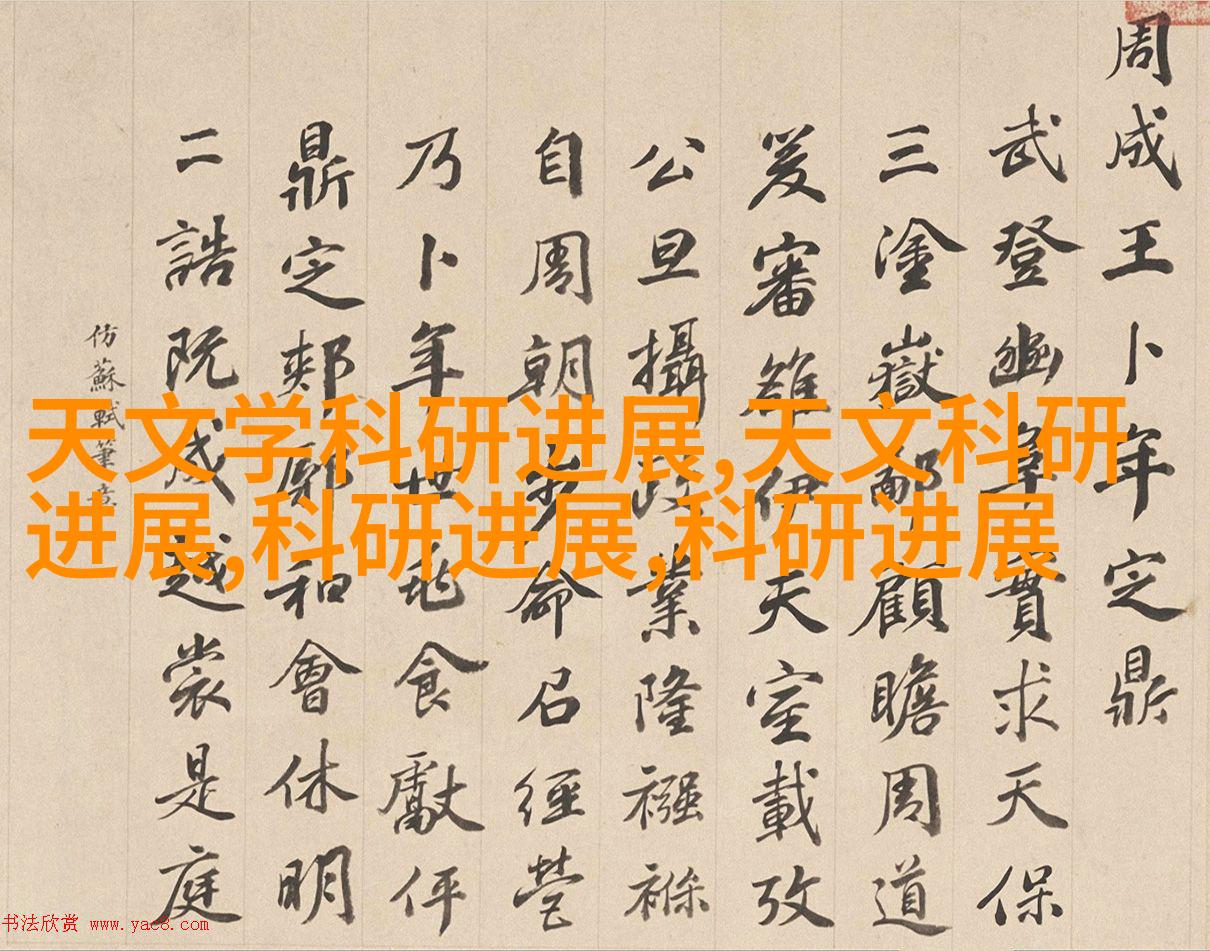 周成王卜年定鼎
武登豳阜貫求天保
三塗嶽鄙顧瞻周道
爰審雒伊天室載攷
公旦攝政業隆襁褓
自周朝步命召經營
乃卜年世兆食獻伻
鼎定郟鄏和會休明
二誥既成越裳是庭
仿蘇軾筆意
天文学科研进展,天文科研
进展,科研进展,科研进展
书法欣赏 www.yac8.com